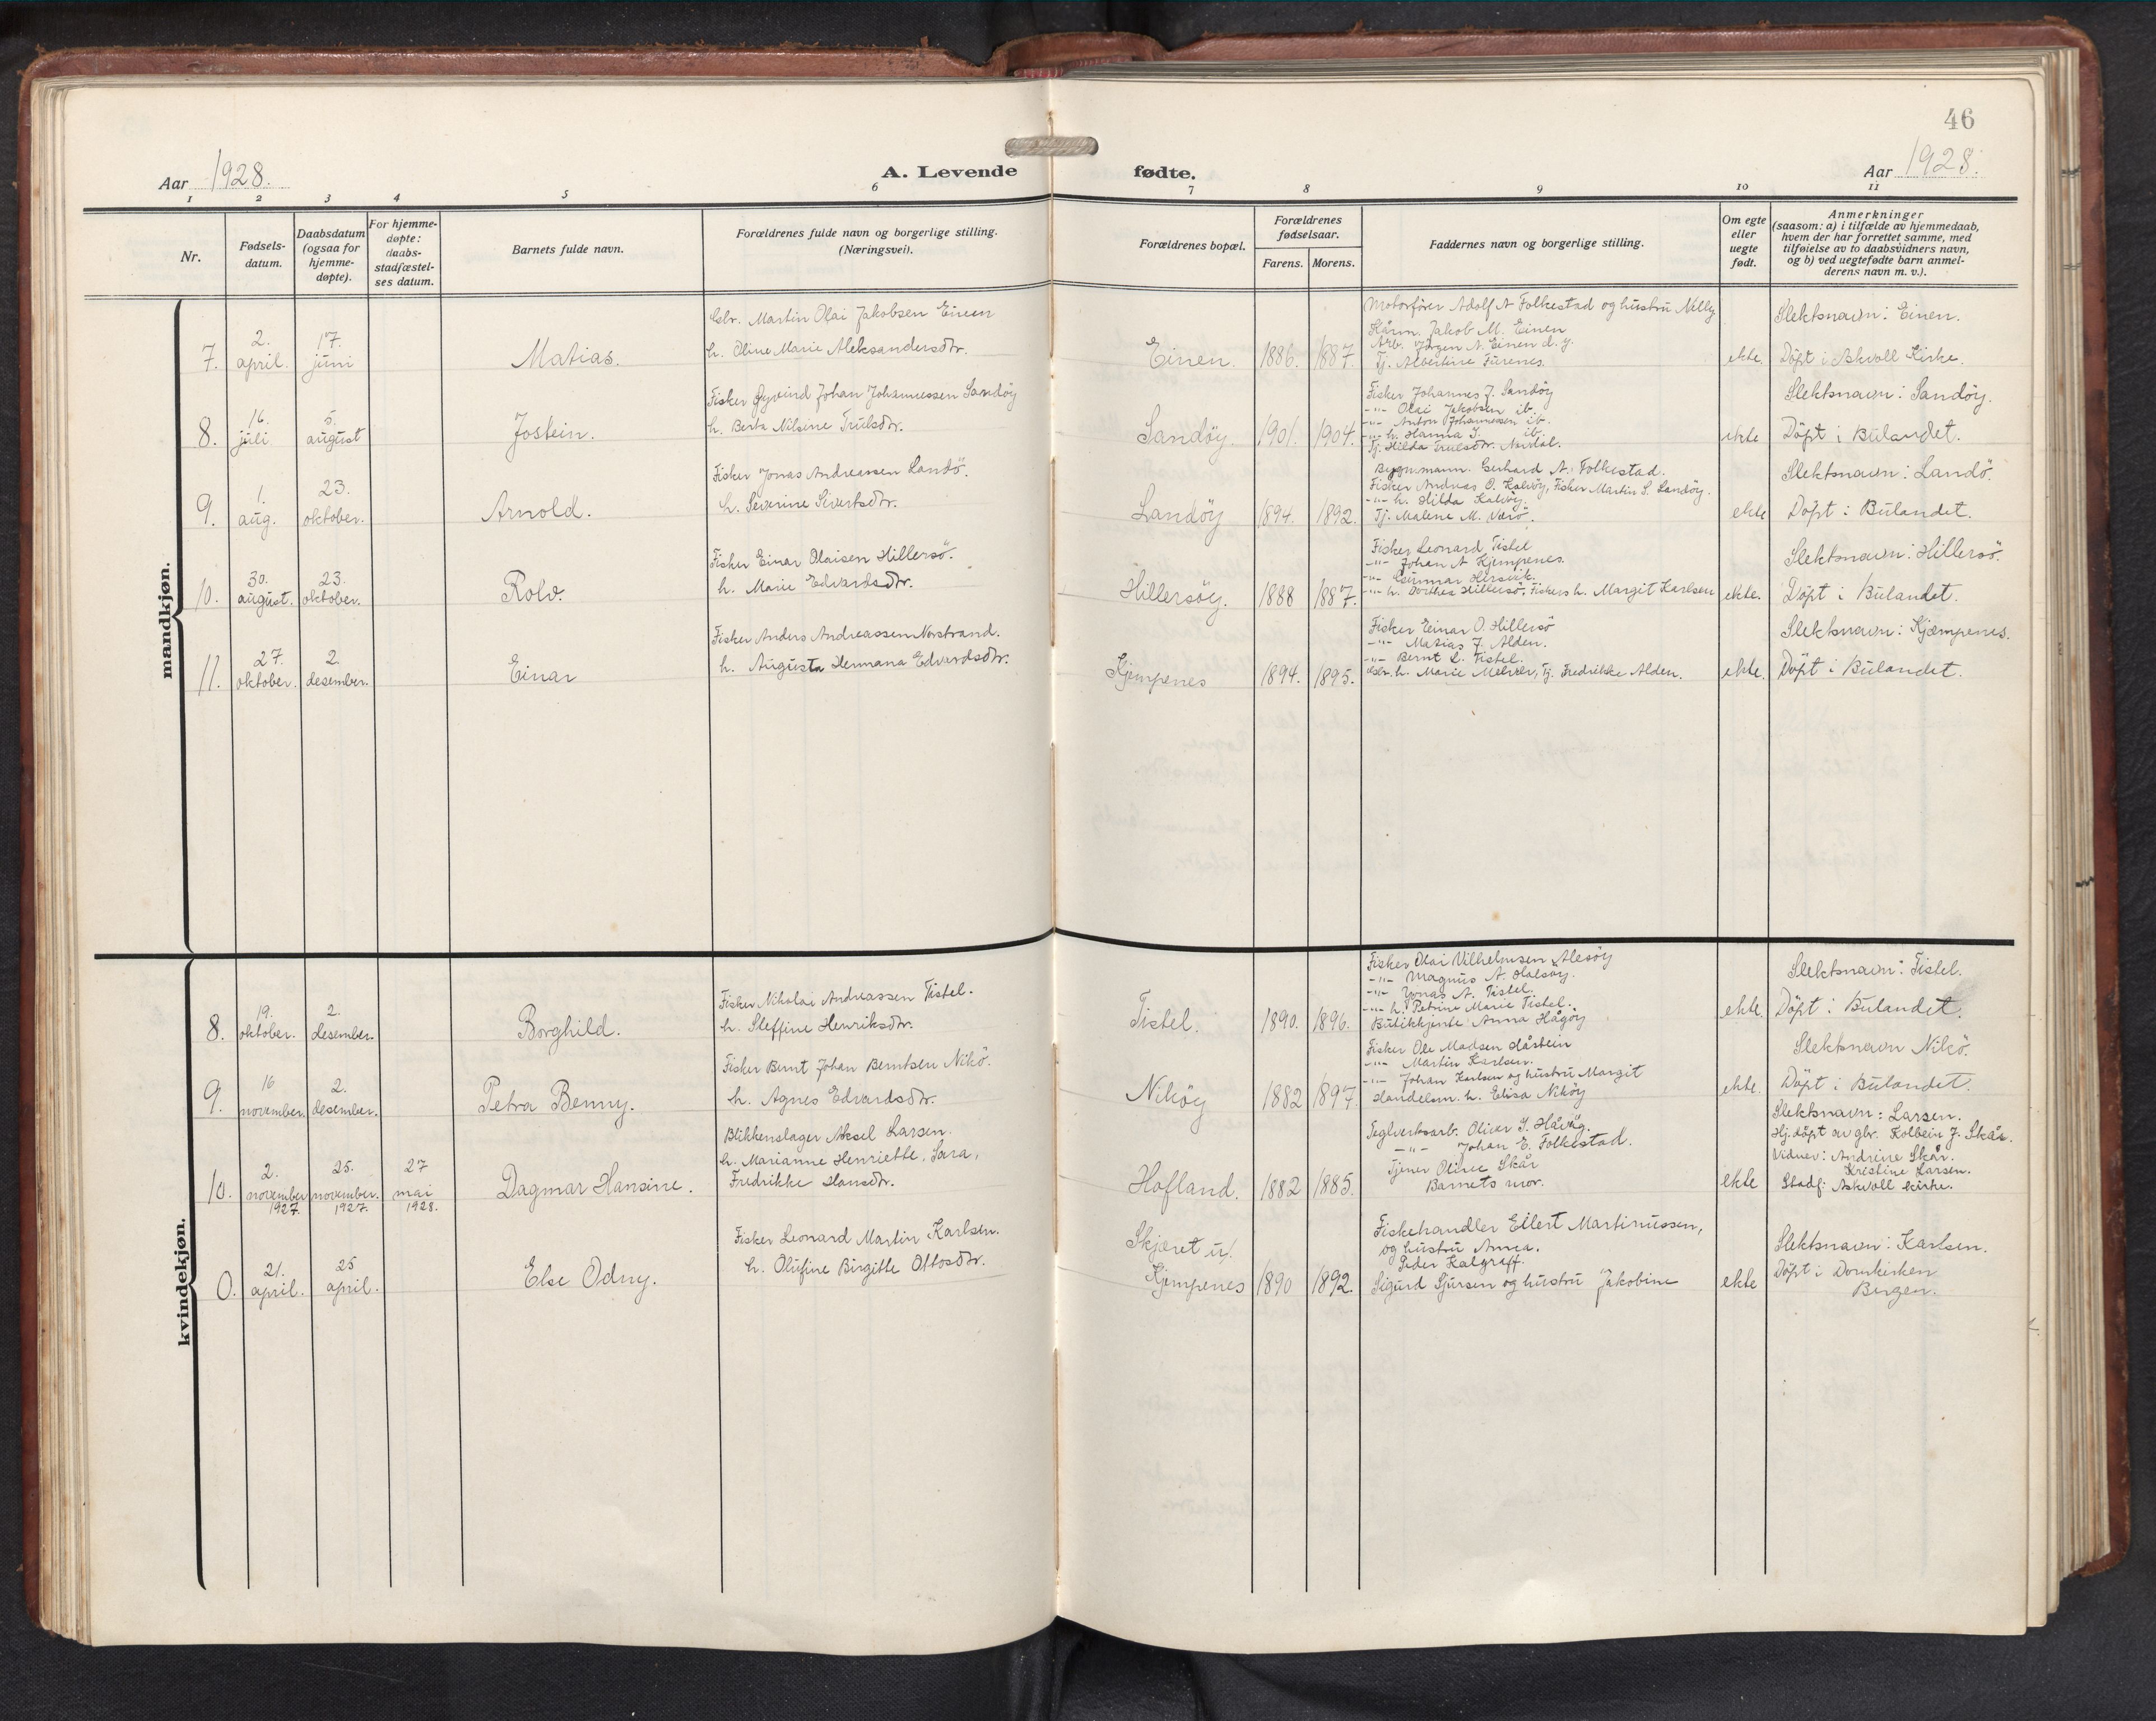 46
Aar 1928.
A. Levende fødte.
Aar 1928.
1 2 3 4 5 6 7 8 9 10 11
Nr.
Fødsels-
datum.
Daabsdatum
(ogsaa for
hjemme-
døpte).
For hjemme-
døpte:
daabs-
stadfæstel-
ses datum.
Barnets fulde navn.
Forældrenes fulde navn og borgerlige stilling.
(Næringsvei).
Forældrenes bopæl.
Forældrenes
fødselsaar.
Farens. Morens.
Faddernes navn og borgerlige stilling.
Om egte
eller
uegte
født.
Anmerkninger
(saasom: a) i tilfælde av hjemmedaab,
hvem der har forrettet samme, med
tilføielse av to daabsvidners navn,
og b) ved uegtefødte barn anmel-
derens navn m. v.).
mandkjøn.
7.
2.
april.
17.
juni
Matias.
Gbr. Martin Olai Jakobsen Einen
h. Oline Marie Aleksandersdtr.
Einen. 1886. 1887.
Motorfører Adolf A Folkestad og hustru Nelly
Kårm. Jakob M. Einen
Arb. Jørgen A. Einen d.y.
Tj. Albertine Furenes.
ekte.
Slektsnavn: Einen.
Döpt i Askvoll Kirke.
8.
16.
juli.
5.
august
Jostein.
Fisker Øyvind Johan Johannessen Sandöy
h. Berta Nilsine Trulsdtr.
Sandöy. 1901. 1904.
Fisker Johannes J. Sandöy
-"- Olai Jakobsen ib.
-"- Anton Johannessen ib.
-"- h. Hanna J. ib.
Tj. Hilda Trulsdtr.
ekte
Slektsnavn: Sandöy.
Döpt i Bulandet.
9.
1.
aug.
23.
oktober.
Arnold.
Fisker Jonas Andreassen Landö.
h. Severine Sivertsdtr.
Landöy 1894. 1892.
Bygnmann. Gerhard A. Folkestad.
Fisker Andreas O. Kalvöy, Fisker Martin S. Landöy.
-"- h. Hilda Kalvöy.
Tj. Malene M. Værö.
ekte
Slektsnavn: Landö.
Döpt i Bulandet.
10.
30.
august.
23.
oktober.
Rolv.
Fisker Einar Olaisen Hillersö.
h. Marie Edvardsdtr.
Hillersöy. 1888 1887.
Fisker Leonard Tistel
-"- Johan A Kjempenes.
-"- Gunnar Hersvik.
-"- h. Dorthea Hillersö, Fiskers h. Margit Karlsen
ekte.
Slektsnavn: Hillersö.
Döpt i Bulandet.
11.
27.
oktober.
2.
desember.
Einar
Fisker Anders Andreassen Norstrand.
h. Augusta Hermana Edvardsdtr.
Kjempenes 1894. 1895.
Fisker Einar O. Hillersö
-"- Matias J. Alden.
-"- Bernt L. Tistel.
Gbr. h. Marie Melvær, Tj. Fredrikke Alden.
ekte.
Slektsnavn: Kjæmpenes.
Döpt i Bulandet.
kvindekjøn.
8.
19.
oktober.
2.
desember.
Borghild.
Fisker Nikolai Andreassen Tistel.
h. Steffine Henriksdtr.
Tistel. 1890. 1896.
Fisker Olai Vilhelmsen Alesöy
-"- Magnus A.
-"- Jonas A. Tistel.
-"- h. Petrine Marie Tistel.
Butikkjente Anna Hågöy
ekte.
Slektsnavn: Tistel.
Döpt i Bulandet.
9.
16
november.
2.
desember.
Petra Benny.
Fisker Bernt Johan Berntsen Nikö.
h. Agnes Edvardsdtr.
Niköy 1882 1897.
Fisker Ole Madsen Hårtein
-"- Martin Karlsen.
-"- Johan Karlsen og hustru Margit
Handelsm. h. Elisa Niköy
ekte.
Slektsnavn Nikö.
Döpt i Bulandet.
10.
2.
november
1927.
25.
november.
1927.
27
mai
1928.
Dagmar Hansine.
Blikkenslager Aksel Larsen.
h. Marianne Henriette, Sara,
Fredrikke Hansdtr.
Hofland. 1882 1885.
Teglverksarb. Oliver J. Håvåg.
-"- Johan E. Folkestad.
Tjener Oline Skår
Barnets mor.
ekte
Slektsnavn: Larsen.
Hj.döpt av gbr. Kolbein J. Skår.
Vidner: Andrine Skår.
Kristine Larsen.
Stadf: Askvoll kirke.
0.
21.
april.
25
april.
Else Odny.
Fisker Leonard Martin Karlsen.
h. Olufine Birgitte Ottosdtr.
Skjæret u/
Kjempenes 1890 1892.
Fiskehandler Eilert Martinussen,
og hustru Anna.
Peder Kalgraff.
Sigurd Sjursen og hustru Jakobine
ekte
Slektsnavn: Karlsen.
Döpt i Domkirken
Bergen.